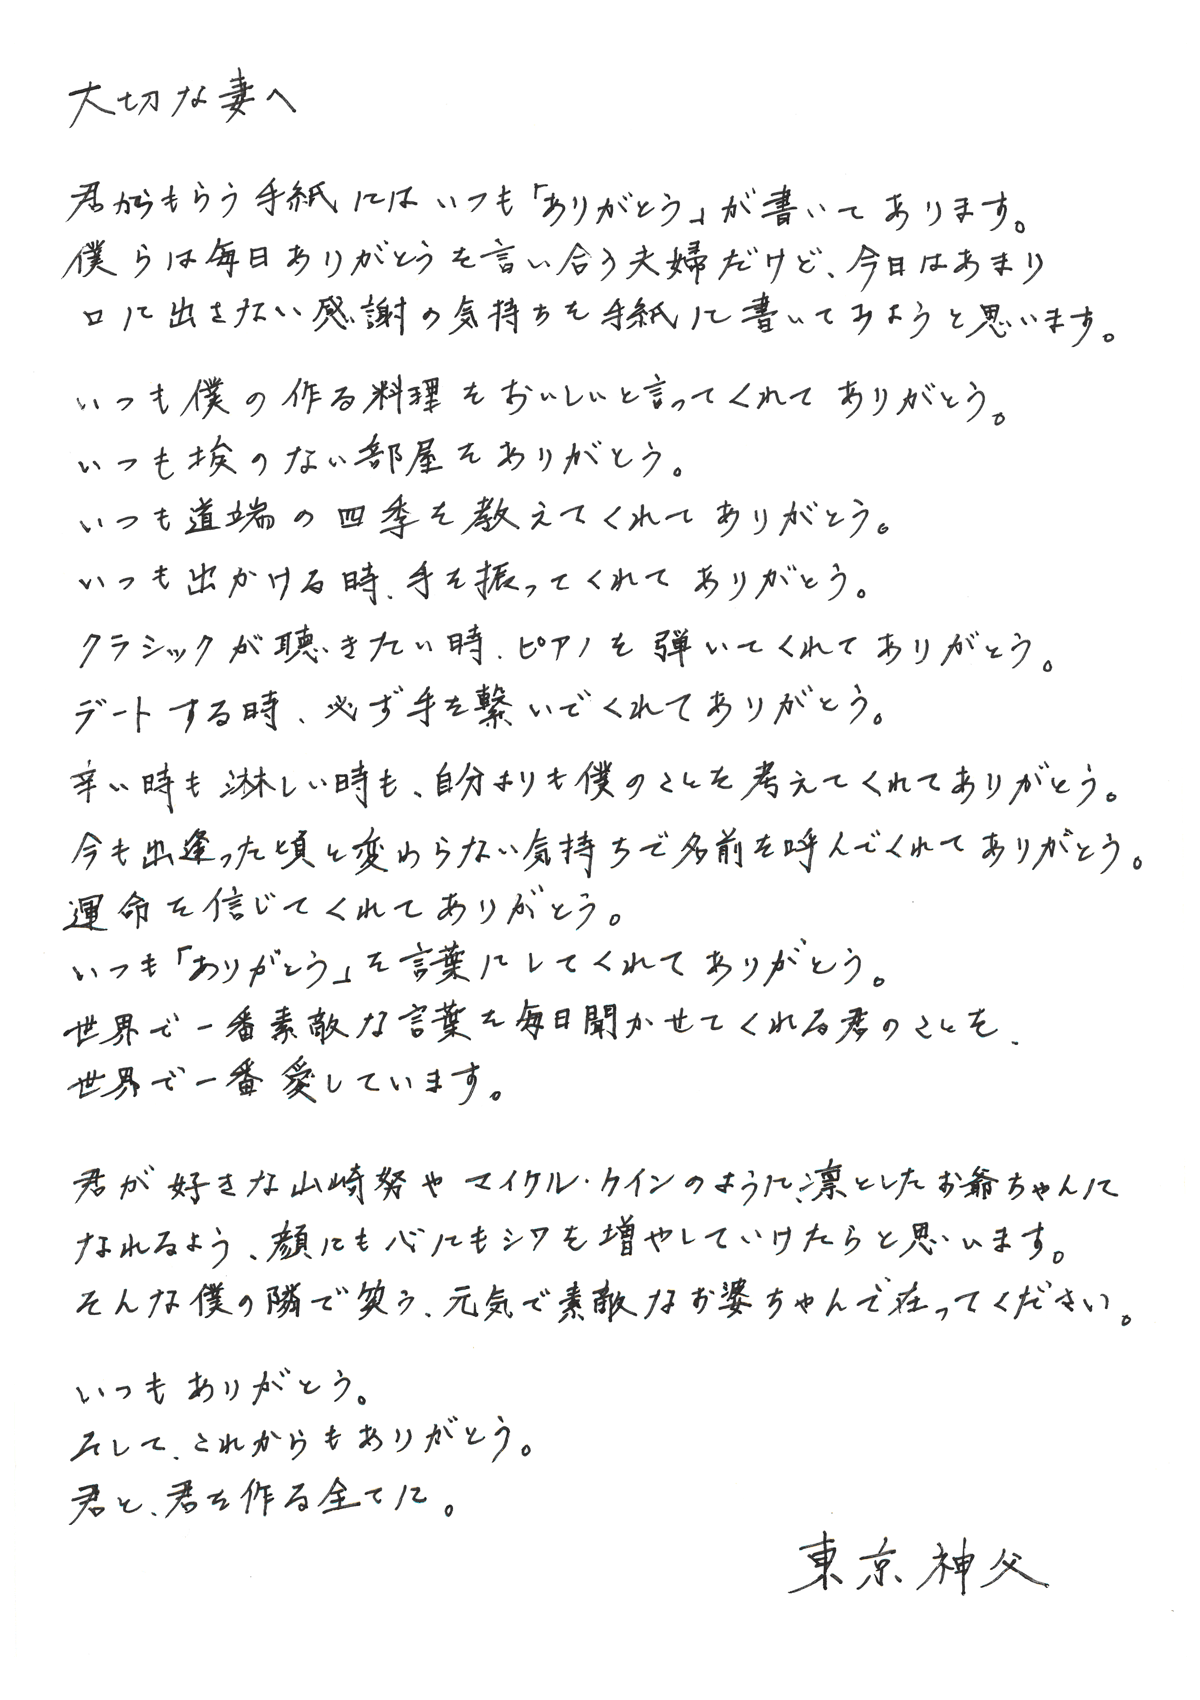 大切な妻へ
君からもらう手紙にはいつも「ありがとう」が書いてあります。
僕らは毎日ありがとうを言い合う夫婦だけど、今日はあまり
口に出さない感謝の気持ちを手紙に書いてみようと思います。
いつも僕の作る料理をおいしいと言ってくれてありがとう。
いつも埃のない部屋をありがとう。
いつも道端の四季を教えてくれてありがとう。
いつも出かける時、手を振ってくれてありがとう。
クラシックが聴きたい時、ピアノを弾いてくれてありがとう。
デートする時、必ず手を繋いでくれてありがとう。
辛い時も淋しい時も、自分よりも僕のことを考えてくれてありがとう。
今も出逢った頃と変わらない気持ちで名前を呼んでくれてありがとう。
運命を信じてくれてありがとう。
いつも「ありがとう」を言葉にしてくれてありがとう。
世界で一番素敵な言葉を毎日聞かせてくれる君のことを、
世界で一番愛しています。
君が好きな山崎努やマイケル・ケインのように、凛としたお爺ちゃんに
なれるよう、顔にも心にもシワを増やしていけたらと思います。
そんな僕の隣で笑う、元気で素敵なお婆ちゃんで在ってください。
いつもありがとう。
そして、これからもありがとう。
君と、君を作る全てに。
東京神父